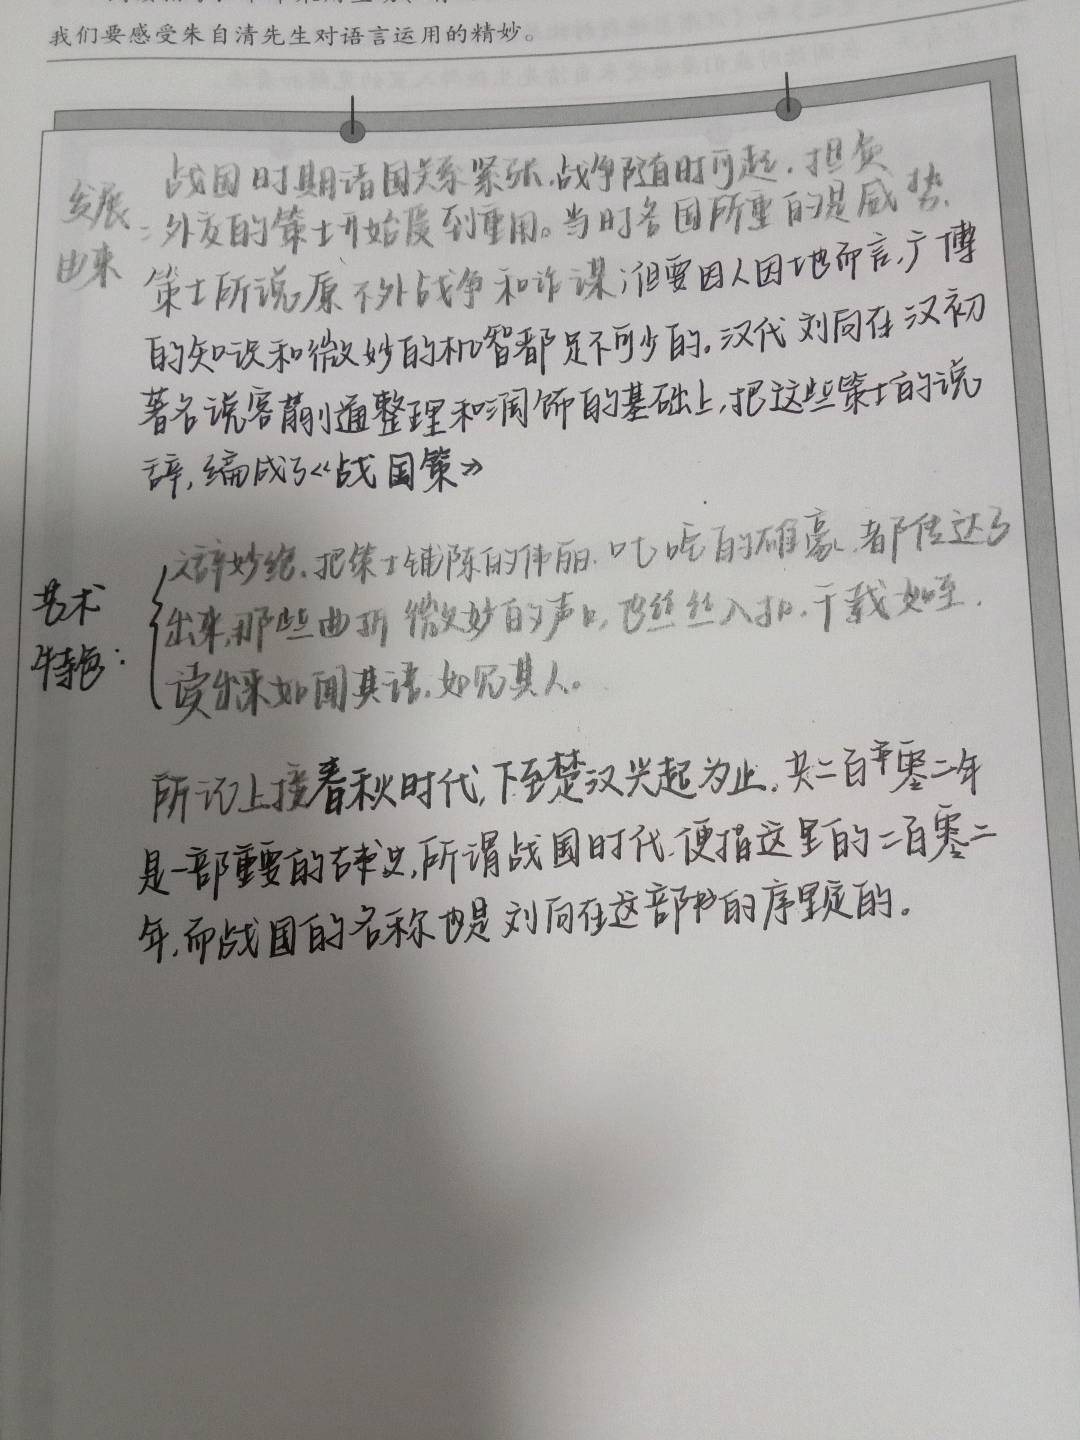 我们要感受朱自清先生对语言运用的精妙。
发展由来:
战国时期诸国关系紧张,战争随时可起,担负
外交的策士开始受到重用。当时各国所重的是威势,
策士所说原不外战争和诈谋;但要因人因地而言,广博
的知识和微妙的机智都是不可少的。汉代刘向在汉初
著名说客蒯通整理和润饰的基础上,把这些策士的说
辞,编成了《战国策》
艺术特色:
文辞妙绝,把策士铺陈的伟丽,叱咤的雄豪,都传达了
出来,那些曲折微妙的声口,也丝丝入扣,千载如生,
读出来如闻其语,如见其人。
所记上接春秋时代,下至楚汉兴起为止,共二百零二年
是一部重要的古史,所谓战国时代,便指这里的二百零二
年,而战国的名称也是刘向在这部书的序里定的。